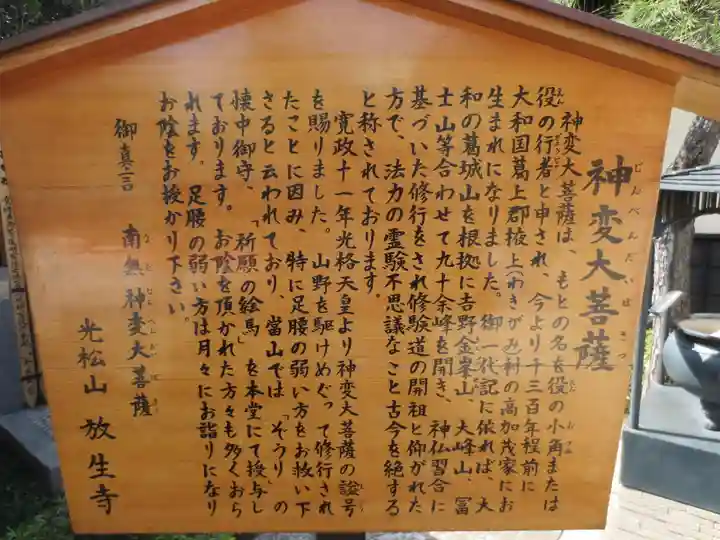 神変大菩薩
神変大菩薩は、もとの名を役の小角または
役の行者と申され、今より千三百年程前に
大和国葛上郡掖上(わきがみ)村の高加茂家にお
生まれになりました。御一代記に依れば、大
和の葛城山を根拠に吉野金峯山、大峰山、冨
士山等合わせて九十余峰を開き、神仏習合に
基づいた修行をされ修験道の開祖と仰がれた
方で、法力の霊験不思議なこと古今を絶する
と称されております。
寛政十一年光格天皇より神変大菩薩の諡号
を賜りました。山野を駆けめぐって修行され
たことに因み、特に足腰の弱い方をお救い下
さると云われており、當山では、「ぞうり」の
懐中御守、「祈願の絵馬」を本堂にて授与し
ております。お陰を頂かれた方々も多くおら
れます。足腰の弱い方は月々にお詣りになり
お陰をお授かり下さい。
御真言 南無神変大菩薩
光松山 放生寺